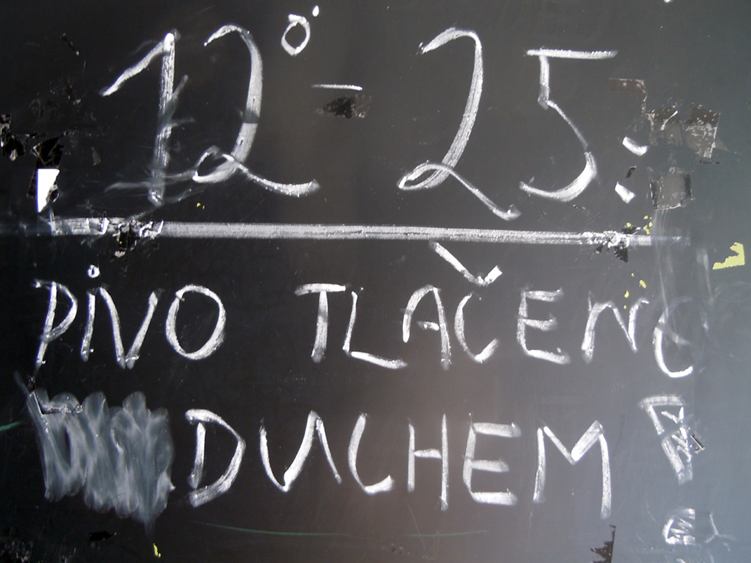 12° - 25.
PIVO TLAČENO
DUCHEM!